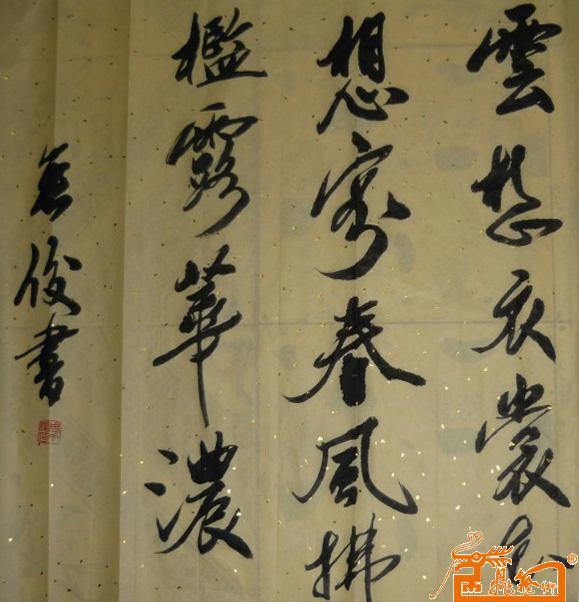 雲想衣裳花
想容春風拂
檻露華濃
俊書